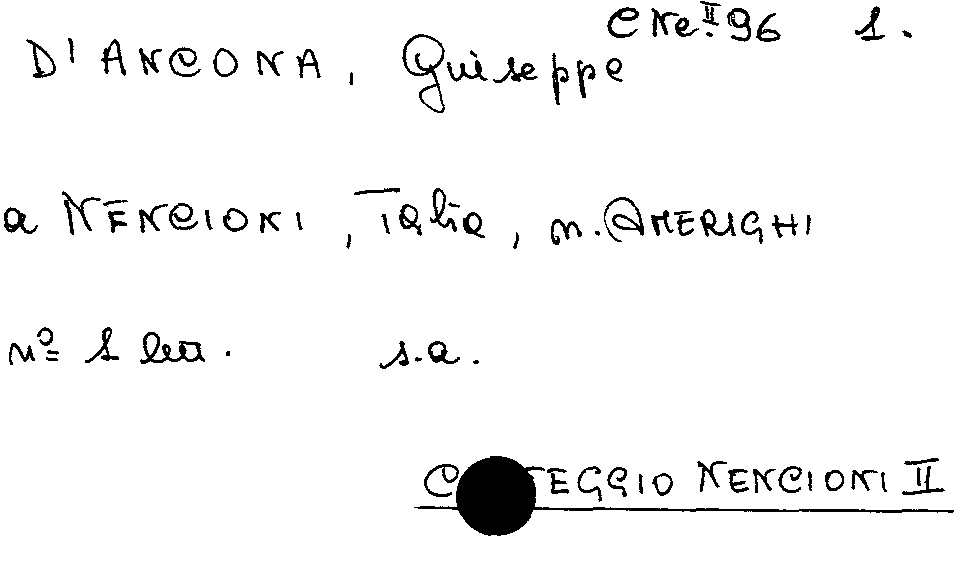 C Ne.II 96 1.
D'ANCONA, Guiseppe
a NENCIONI, Talia, n. AMERIGHI
nº 1 lett. s.a.
C TEGGIO NENCIONI II